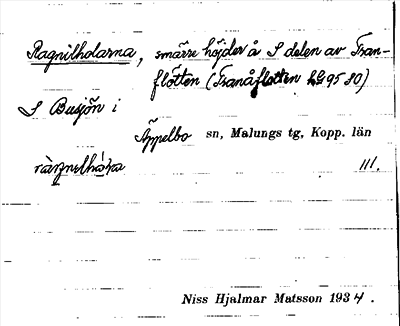 Ragnilholarna, smärre höjder å S delen av Tran-
flötten (Tranåflotten hö 95 80)
S Busjön i
Äppelbo sn, Malungs tg, Kopp. län
III.
Niss Hjalmar Matsson 1934.